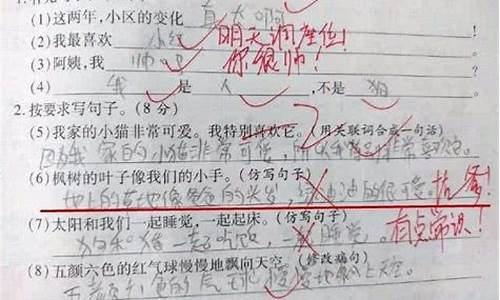 (1)这两年,小区的变化 真大啊
(2)我最喜欢 小红 明天调座位!
(3)阿姨,我 帅吧 你很帅!
(4) 我 是 人 ,不是 狗
2.按要求写句子。(8分)
(5)我家的小猫非常可爱。我特别喜欢它。(用关联词合成一句话)
因为我家的小猫非常可爱,所以我 非常喜欢它。
(6)枫树的叶子像我们的小手。(仿写句子)
地上的草地像爸爸的头发,绿油油的很 。抗
(7)太阳和我们一起睡觉,一起起床。(仿写句子)
狗和猪一起吃饭,一 睡觉。有点常识!
(8)五颜六色的红气球慢慢地飘向天空。(修改病句)
五颜六色的气球慢慢地飘上天空。